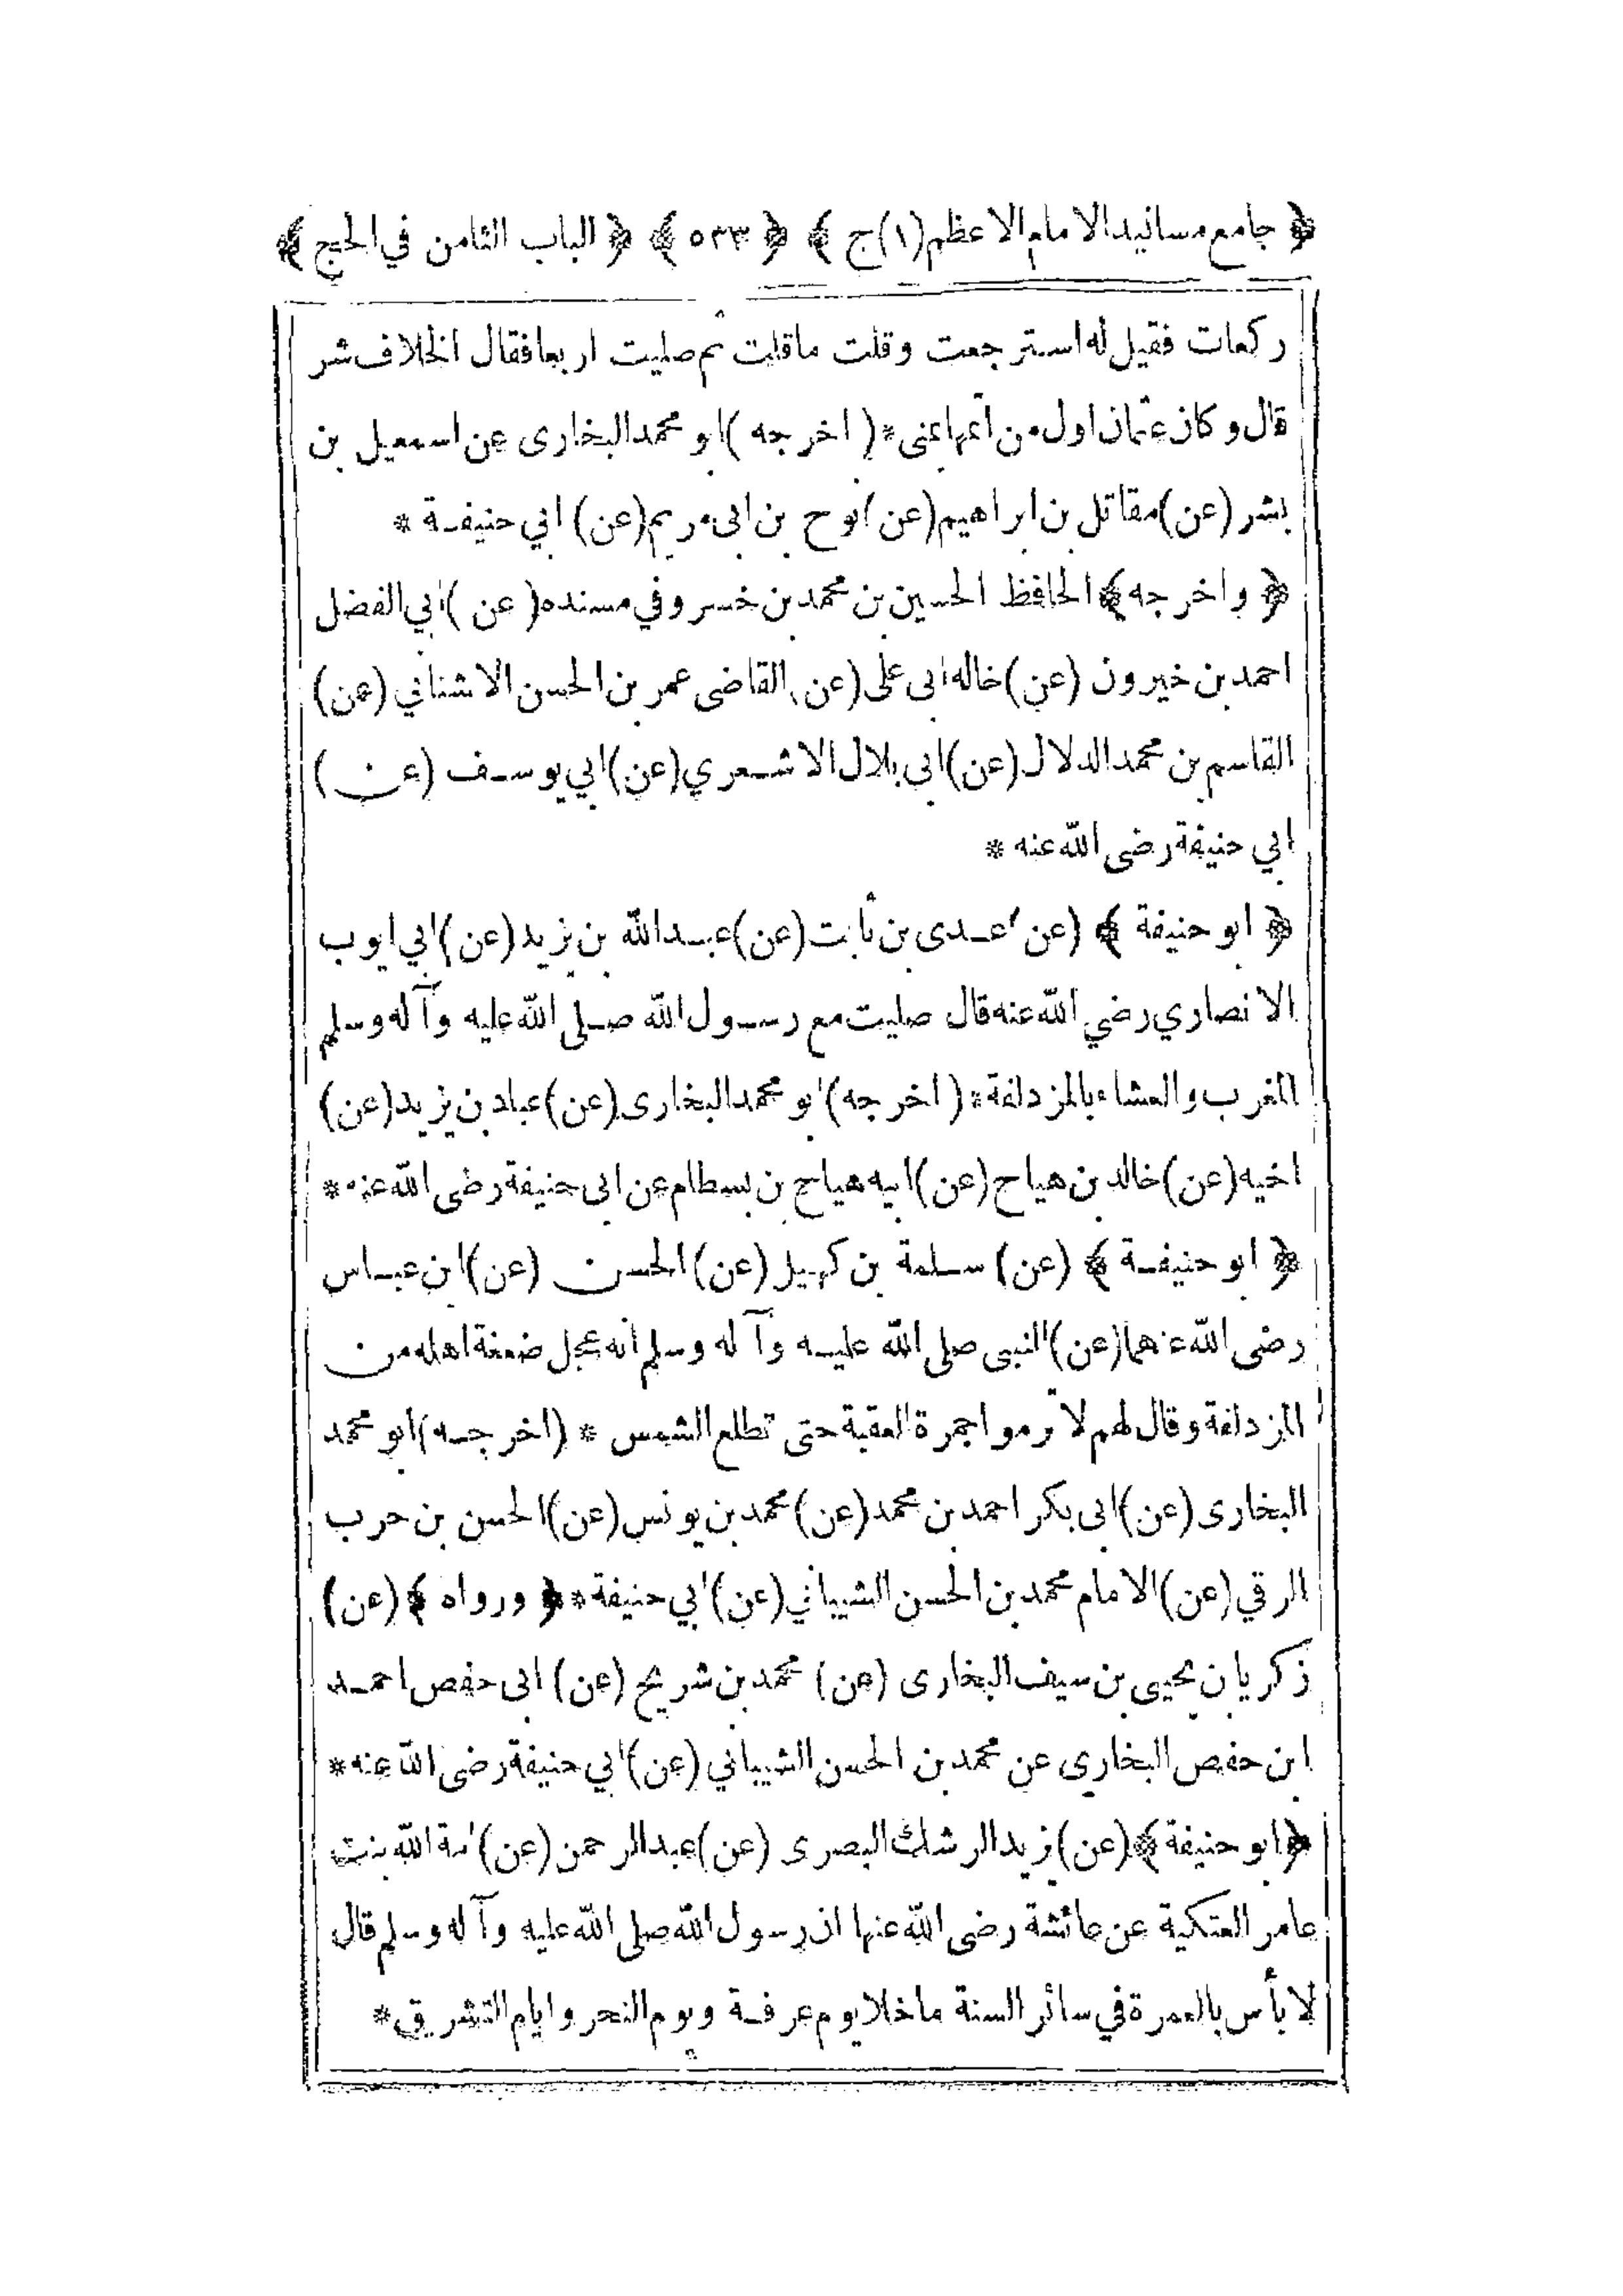 ﴿ جامع مسانيد الامام الاعظم (١) ج ﴾ ﴿ ٥٣٣ ﴾ ﴿ الباب الثامن في الحج ﴾
ركعات فقيل له استرجعت وقلت ماقلت ثم صليت اربعا فقال الخلاف شر
قال وكان عثمان اول من أتمها بمنى * ( اخرجه ) ابو محمد البخارى عن اسمعيل بن
بشر (عن) مقاتل بن ابراهيم (عن) نوح بن ابى مريم (عن) ابي حنيفة *
﴿ واخرجه ﴾ الحافظ الحسين بن محمد بن خسرو في مسنده ( عن ) ابي الفضل
احمد بن خيرون (عن) خاله ابى على (عن) القاضى عمر بن الحسن الاشناني (عن)
القاسم بن محمد الدلال (عن) ابى بلال الاشعري (عن) ابي يوسف (عن)
ابي حنيفة رضى الله عنه *
﴿ ابو حنيفة ﴾ (عن) عدى بن ثابت (عن) عبد الله بن يزيد (عن) ابي ايوب
الانصاري رضي الله عنه قال صليت مع رسول الله صلى الله عليه وآله وسلم
المغرب والعشاء بالمزدلفة * ( اخرجه ) ابو محمد البخارى (عن) عباد بن يزيد (عن)
اخيه (عن) خالد بن هياج (عن) ابيه هياج بن بسطام عن ابى حنيفة رضى الله عنه *
﴿ ابو حنيفة ﴾ (عن) سلمة بن كهيل (عن) الحسن (عن) ابن عباس
رضى الله عنهما (عن) النبى صلى الله عليه وآله وسلم انه عجل ضعفة اهله من
المزدلفة وقال لهم لا ترموا جمرة العقبة حتى تطلع الشمس * (اخرجه) ابو محمد
البخارى (عن) ابى بكر احمد بن محمد (عن) محمد بن يونس (عن) الحسن بن حرب
الرقي (عن) الامام محمد بن الحسن الشيباني (عن) ابي حنيفة * ﴿ ورواه ﴾ (عن)
زكريا بن يحيى بن سيف البخارى (عن) محمد بن شريح (عن) ابى حفص احمد
ابن حفص البخارى عن محمد بن الحسن الشيباني (عن) ابي حنيفة رضى الله عنه *
﴿ ابو حنيفة ﴾ (عن) يزيد الرشك البصرى (عن) عبد الرحمن (عن) امة الله بنت
عامر العتكية عن عائشة رضى الله عنها ان رسول الله صلى الله عليه وآله وسلم قال
لا بأس بالعمرة في سائر السنة ما خلا يوم عرفة ويوم النحر وايام التشريق *